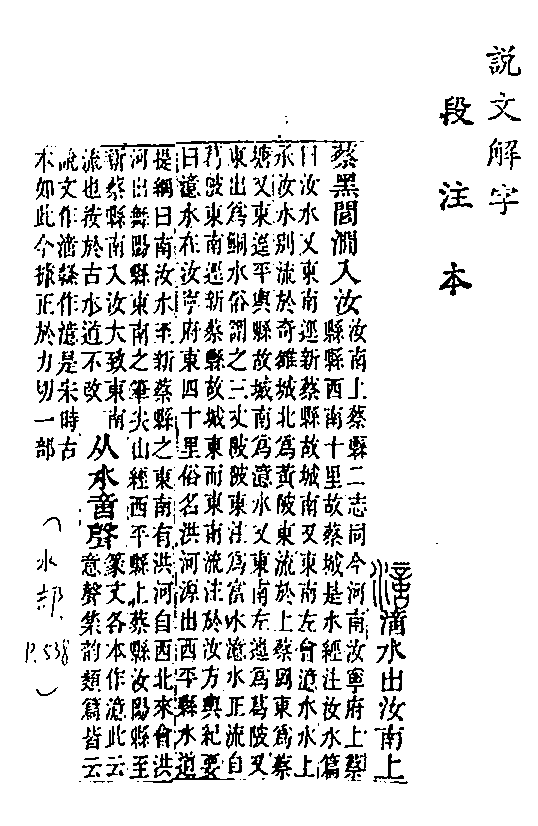 說文解字
段注本
澺水出汝南上
蔡黑閭澗入汝
汝南上蔡縣二志同今河南汝寧府上蔡
縣縣西南十里故蔡城是水經注汝水篇
曰汝水又東南逕新蔡縣故城南又東南左會澺水水上
承汝水別流於奇雒城北爲黃陂東流於上蔡岡東爲蔡
塘又東逕平輿縣故城南爲澺水又東南左迆爲葛陂又
東出爲鮦水俗謂之三丈陂陂東注爲富水澺水正流自
葛陂東南逕新蔡縣故城東而東南流注於汝方輿紀要
曰澺水在汝寧府東四十里俗名洪河源出西平縣水道
提綱曰南汝水至新蔡縣之東南有洪河自西北來會洪
河出舞陽縣東南之筆尖山經西平縣上蔡縣汝陽縣至
新蔡縣南入汝大致東南
流也按於古水道不改
从水啻聲
篆文各本作澺此云
意聲集韵類篇皆云
說文作滳縣作澺是宋時古
本如此今據正於力切一部
(水部 P.538)